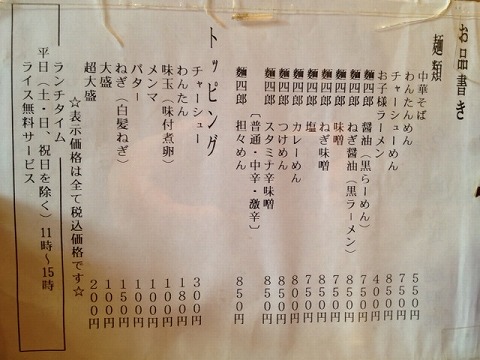 お品書き
麺類
中華そば 550円
わんたんめん 750円
チャーシューめん 850円
お子様ラーメン 400円
麺四郎 醤油（黒らーめん） 750円
麺四郎 ねぎ醤油（黒ラーメン） 850円
麺四郎 味噌 750円
麺四郎 ねぎ味噌 850円
麺四郎 塩 750円
麺四郎 カレーめん 850円
麺四郎 つけめん 850円
麺四郎 スタミナ辛味噌 850円
〔普通・中辛・激辛〕
麺四郎 担々めん 850円
トッピング
チャーシュー 300円
わんたん 180円
味玉（味付煮卵） 100円
メンマ 100円
バター 100円
ねぎ（白髪ねぎ） 150円
大盛 100円
超大盛 200円
☆表示価格は全て税込価格です☆
ランチタイム
平日（土・日、祝日を除く）11時〜15時
ライス無料サービス